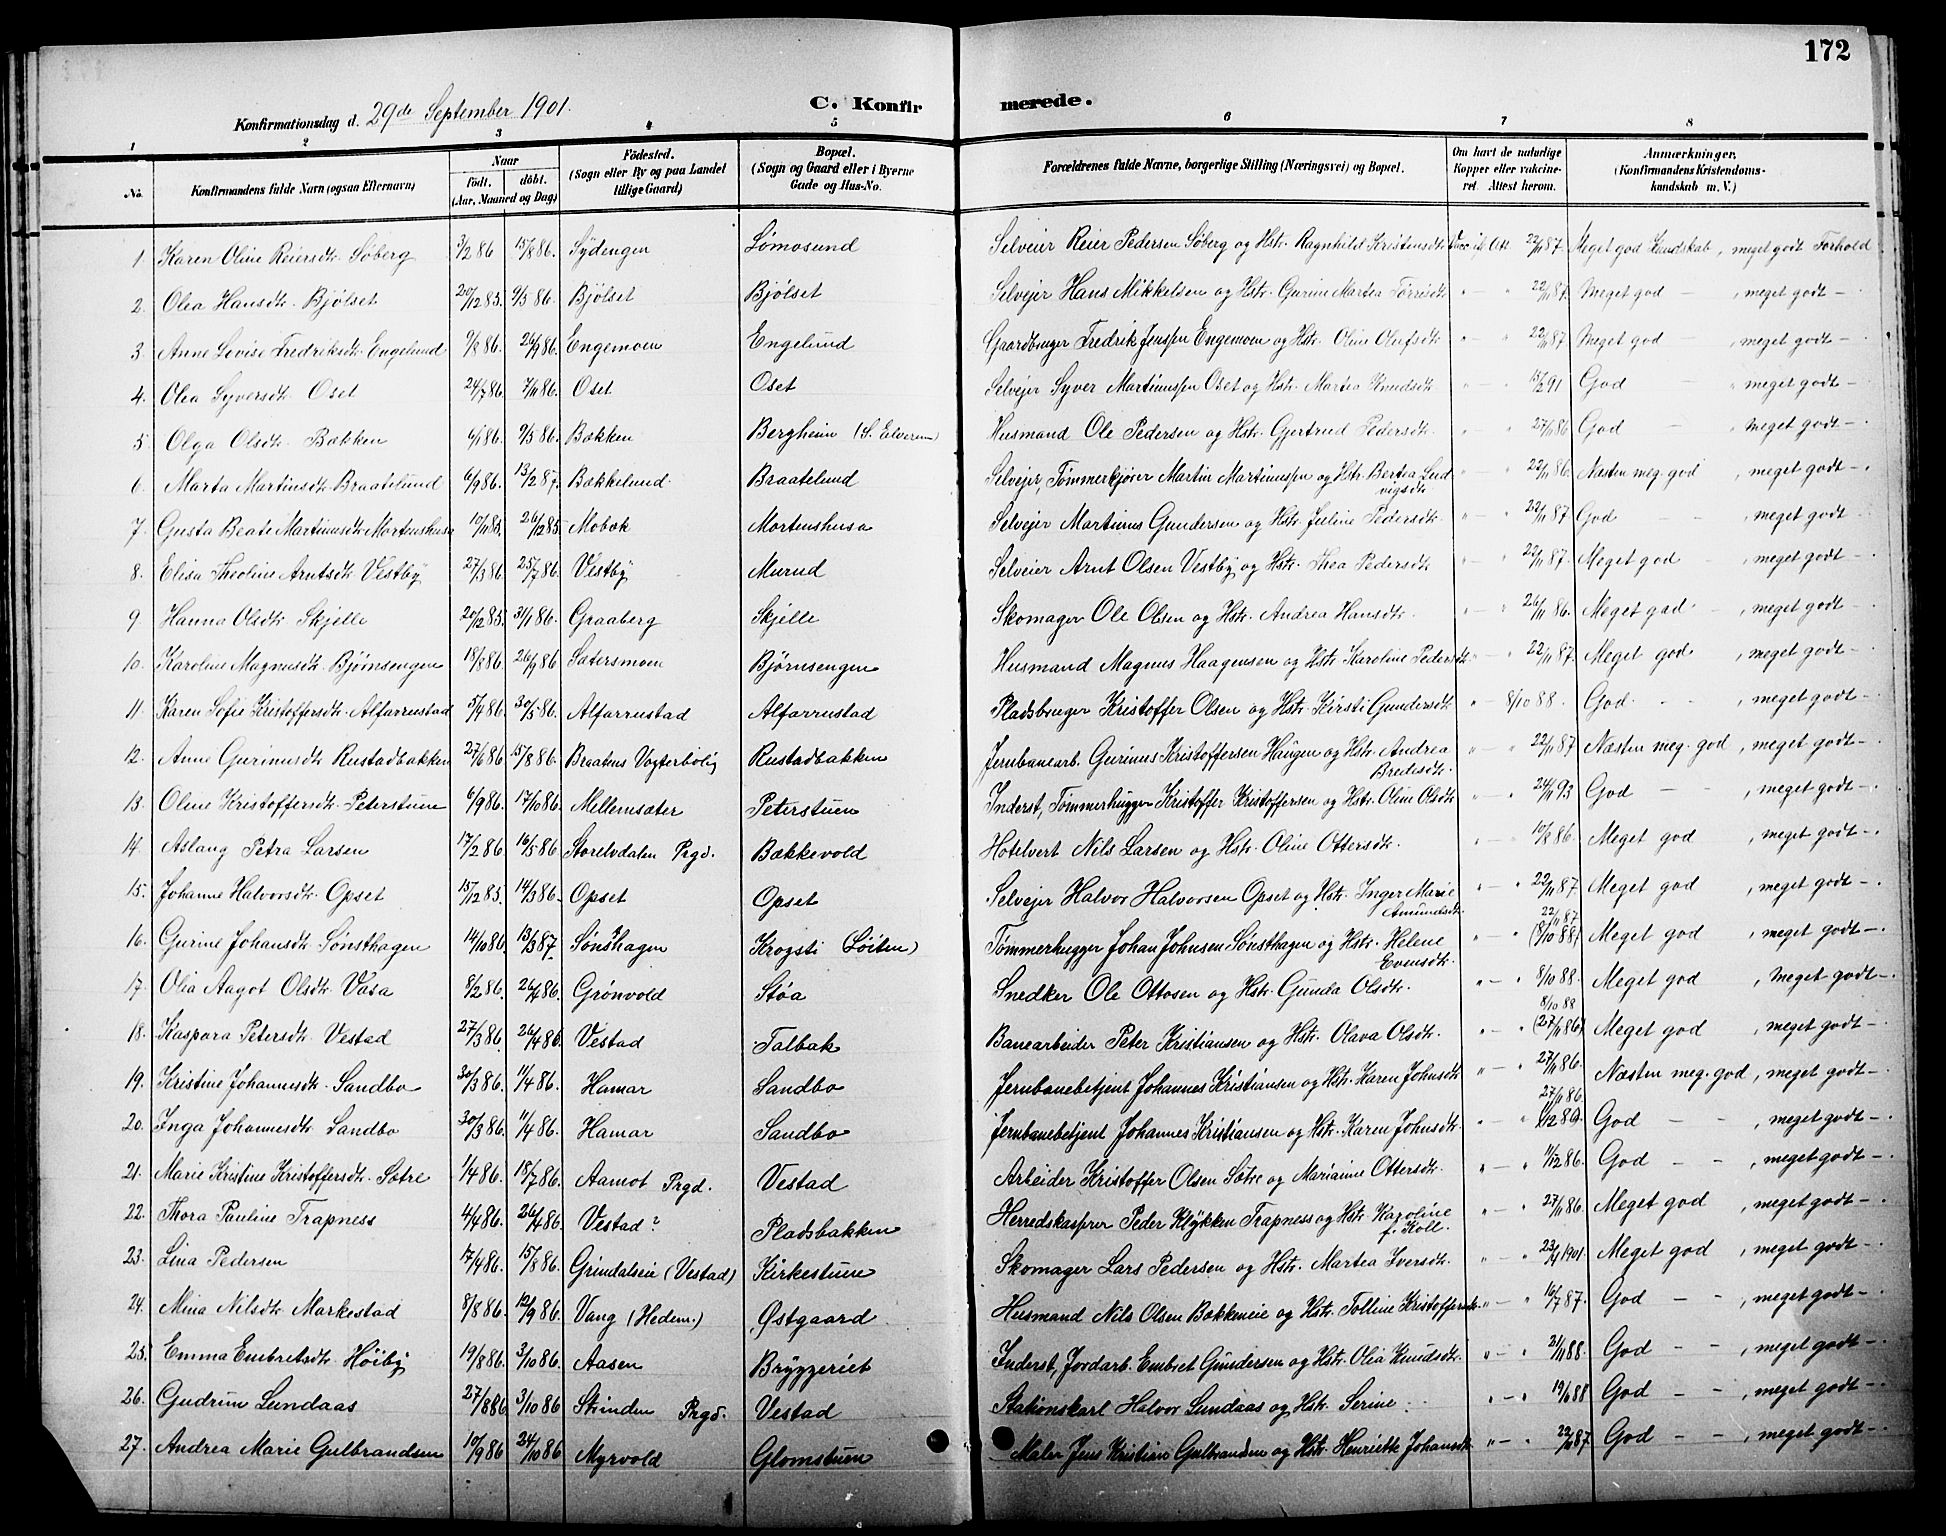 172
Konfirmationsdag d. 29de September 1901. C. Konfirmerede.
1 2 3 4 5 6 7 8
No. Konfirmandens fulde Navn (ogsaa Efternavn) Naar födt. döbt. (Aar, Maaned og Dag) Födested. (Sogn eller By og paa Landet tillige Gaard) Bopæl. (Sogn og Gaard eller i Byerne Gade og Hus-No. Forældrenes fulde Navne, borgerlige Stilling (Næringsvei) og Bopæl. Om havt de naturlige Kopper eller vakcineret. Attest herom. Anmærkninger. (Konfirmandens Kristendomskundskab m. V.)
1. Karen Oline Reiersdtr. Søberg 3/2 86 15/8 86. Sydengen Lømosund Selveier Reier Pedersen Søberg og Hstr. Ragnhild Kristensdtr. 22/11 87 Meget god Kundskab, meget godt Forhold
2. Olea Hansdtr. Bjølset 20/12 85. 9/5 86. Bjølset Bjølset Selvejer Hans Mikkelsen og Hstr. Gurine Martea Tørrisdtr. " — " 22/11 87. Meget god — , meget godt —
3. Anne Lovise Fredriksdtr. Engelund 9/8 86. 26/9 86. Engemoen Engelund Gaardbruger Fredrik Jenssen Engemoen og Hstr. Oline Olufsdtr. " — " 22/11 87 Meget god — , meget godt —
4. Olea Syversdtr. Oset 24/7 86. 7/11 86. Oset Oset Selvejer Syver Martinussen Oset og Hstr. Martea Knudsdtr. " — " 15/2 91 God — " meget godt —
5 Olga Olsdtr. Bakken 6/1 86. 9/5 86. Bakken Bergheim (S. Elverum) Husmand Ole Pedersen og Hstr. Gjertrud Pedersdtr. " — " 27/11 86 God — , meget godt —
6 Marta Martinsdtr. Braatelund 6/9 86. 13/2 87. Bakkelund Braatelund Selvejer, Tømmerkjører Martin Martinussen og Hstr. Bertea Ludvigsdtr. " — " 22/11 86. Næsten meg. god , meget godt —
7. Gusta Beate Martinusdtr. Mortenshusa 10/11 85. 26/12 85 Mobæk Mortenshusa Selvejer Martinus Gundersen og Hstr. Juline Pedersdtr. " — " 22/11 87 God — , meget godt —
8. Elisa Theoline Arntsdtr. Vestby 27/3 86. 25/7 86. Vestby Murud Selveier Arnt Olsen Vestby og Hstr. Thea Pedersdtr. " — " 22/11 87. Meget god — , meget godt —
9 Hanna Olsdtr. Skjelle 20/12 85. 31/1 86. Graaberg Skjelle Skomager Ole Olsen og Hstr. Andrea Hansdtr. " — " 26/11 86. Meget god , meget godt —
10. Karoline Magnusdtr. Bjørnsengen 18/8 86. 26/9 86. Sætersmoen Bjørnsengen Husmand Magnus Haagensen og Hstr. Karoline Pedersdtr. " — " 22/11 87. Meget god , meget godt —
11. Karen Sofie Kristoffersdtr. Alfarrustad 5/4 86. 30/5 86. Alfarrustad Alfarrustad Pladsbruger Kristoffer Olsen og Hstr. Kirsti Gundersdtr. " — 8/10 88. God — , meget godt —
12. Anne Gurinusdtr. Rustadbakken 27/6 86. 15/8 86. Braatens Vogterbolig Rustadbakken Jernbanearb. Gurinus Kristoffersen Haugen og Hstr. Andrea Bredesdtr. " — " 22/11 87 Næsten meg. god , meget godt —
13. Oline Kristoffersdtr. Peterstuen 6/9 86. 17/10 86. Mellemsæter Peterstuen Inderst, Tømmerhugger Kristoffer Kristoffersen og Hstr. Oline Olsdtr. " — " 24/11 93 God — , meget godt —
14 Aslaug Petra Larsen 17/2 86 16/5 86 Storelvdalen Prgd. Bækkevold Hotelvert Nils Larsen og Hstr. Oline Ottersdtr. " — " 10/8 86. Meget god , meget godt —
15. Johanne Halvorsdtr. Opset 15/12 85. 14/3 86. Opset Opset Selvejer Halvor Halvorsen Opset og Hstr. Inger Marie Amundsdtr. " — " 22/11 87 Meget god , meget godt —
16. Gurine Johansdtr. Sønsthagen 14/10 86. 13/3 87. Sønsthagen Krogsti (Løiten) Tømmerhugger Johan Johnsen Sønsthagen og Hstr. Helene Evensdtr. " — " 22/11 87 (8/10 88) Meget god , meget godt —
17. Olia Aagot Olsdtr. Vasa 8/2 86. 26/4 86. Grønvold Støa Snedker Ole Ottosen og Hstr. Gunda Olsdtr. " — " 8/10 88. Meget god , meget godt —
18. Kaspara Petersdtr. Vestad 27/3 86. 26/4 86. Vestad Talbak Banearbeider Peter Kristiansen og Hstr. Olava Olsdtr. " — " 8/10 88 (27/11 86) Meget god , meget godt —
19. Kristine Johannesdtr. Sandbo 30/3 86. 11/4 86. Hamar Sandbo Jernbanebetjent Johannes Kristiansen og Hstr. Karen Johnsdtr. " — " 27/11 86. Næsten meg. god , meget godt —
20. Inga Johannesdtr. Sandbo 30/3 86. 11/4 86. Hamar Sandbo Jernbanebetjent Johannes Kristiansen og Hstr. Karen Johnsdtr. " — " 27/11 86 God — , meget godt —
21. Marie Kristine Kristoffersdtr. Sætre 1/4 86. 18/7 86. Aamot Prgd. Vestad Arbeider Kristoffer Olsen Sætre og Marianne Ottersdtr. " — " 11/12 86. God — , meget godt —
22. Thora Pauline Trapness 4/4 86. 26/4 86. Vestad? Pladsbakken Herredskasserer Peder Klykken Trapness og Hstr. Karoline f. Koll. " — " 27/11 86. Meget god , meget godt —
23. Lina Pedersen 17/4 86. 15/8 86. Grindalseie (Vestad) Kirkestuen Skomager Lars Pedersen og Hstr. Martea Iversdtr. " — " 1901. Meget god , meget godt —
24. Mina Nilsdtr. Markestad 8/8 86. 12/9 86. Vang (Hedem.) Østgaard Husmand Nils Olsen Bakkeneie og Hstr. Tolline Kristoffersdtr. " — " 16/7 87. God — , meget godt —
25. Emma Embretsdtr. Høiby 19/8 86. 3/10 86. Aasen Bryggeriet Inderst, Jordarb. Embret Gundersen og Hstr. Olia Knudsdtr. " — " 21/11 88. God — , meget godt —
26. Gudrun Sundaas 27/8 86 3/10 86 Strinden Prgd. Vestad Stationskarl Halvor Sundaas og Hstr. Serine " — " God — , meget godt —
27. Andrea Marie Gulbrandsen 10/9 86 24/10 86 Myrvold Glomstuen Maler Jens Kristian Gulbrandsen og Hstr. Henriette Johansdtr. " — " 22/11 87. God — , meget godt —